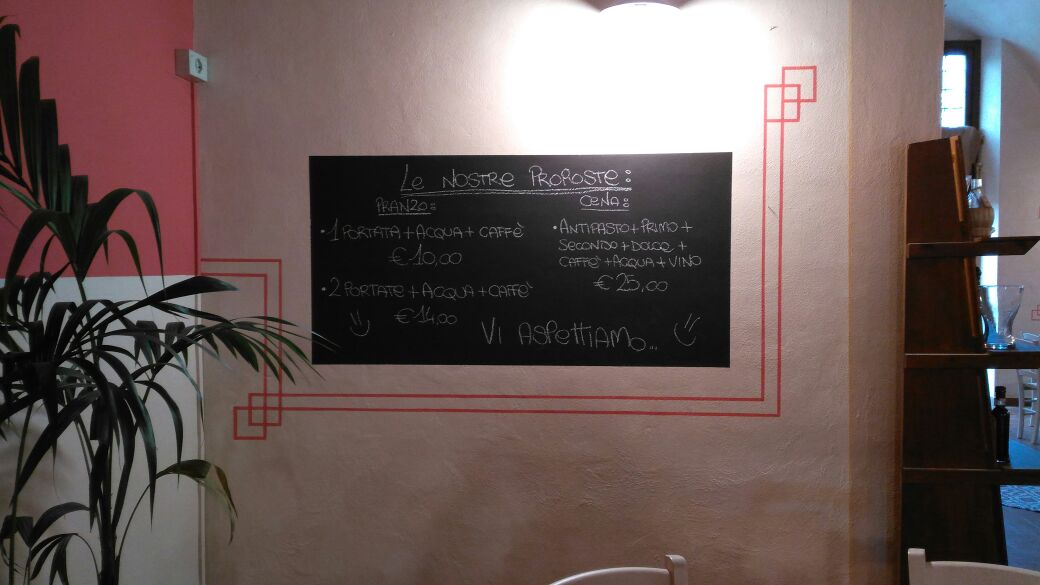 Le NOSTRE PROPOSTE:
PRANZO:
• 1 PORTATA + ACQUA + CAFFÈ
€ 10,00
• 2 PORTATE + ACQUA + CAFFE'
€ 14,00
CENA:
• ANTIPASTO + PRIMO +
SECONDO + DOLCE +
CAFFE' + ACQUA + VINO
€ 25,00
VI ASPETTIAMO...